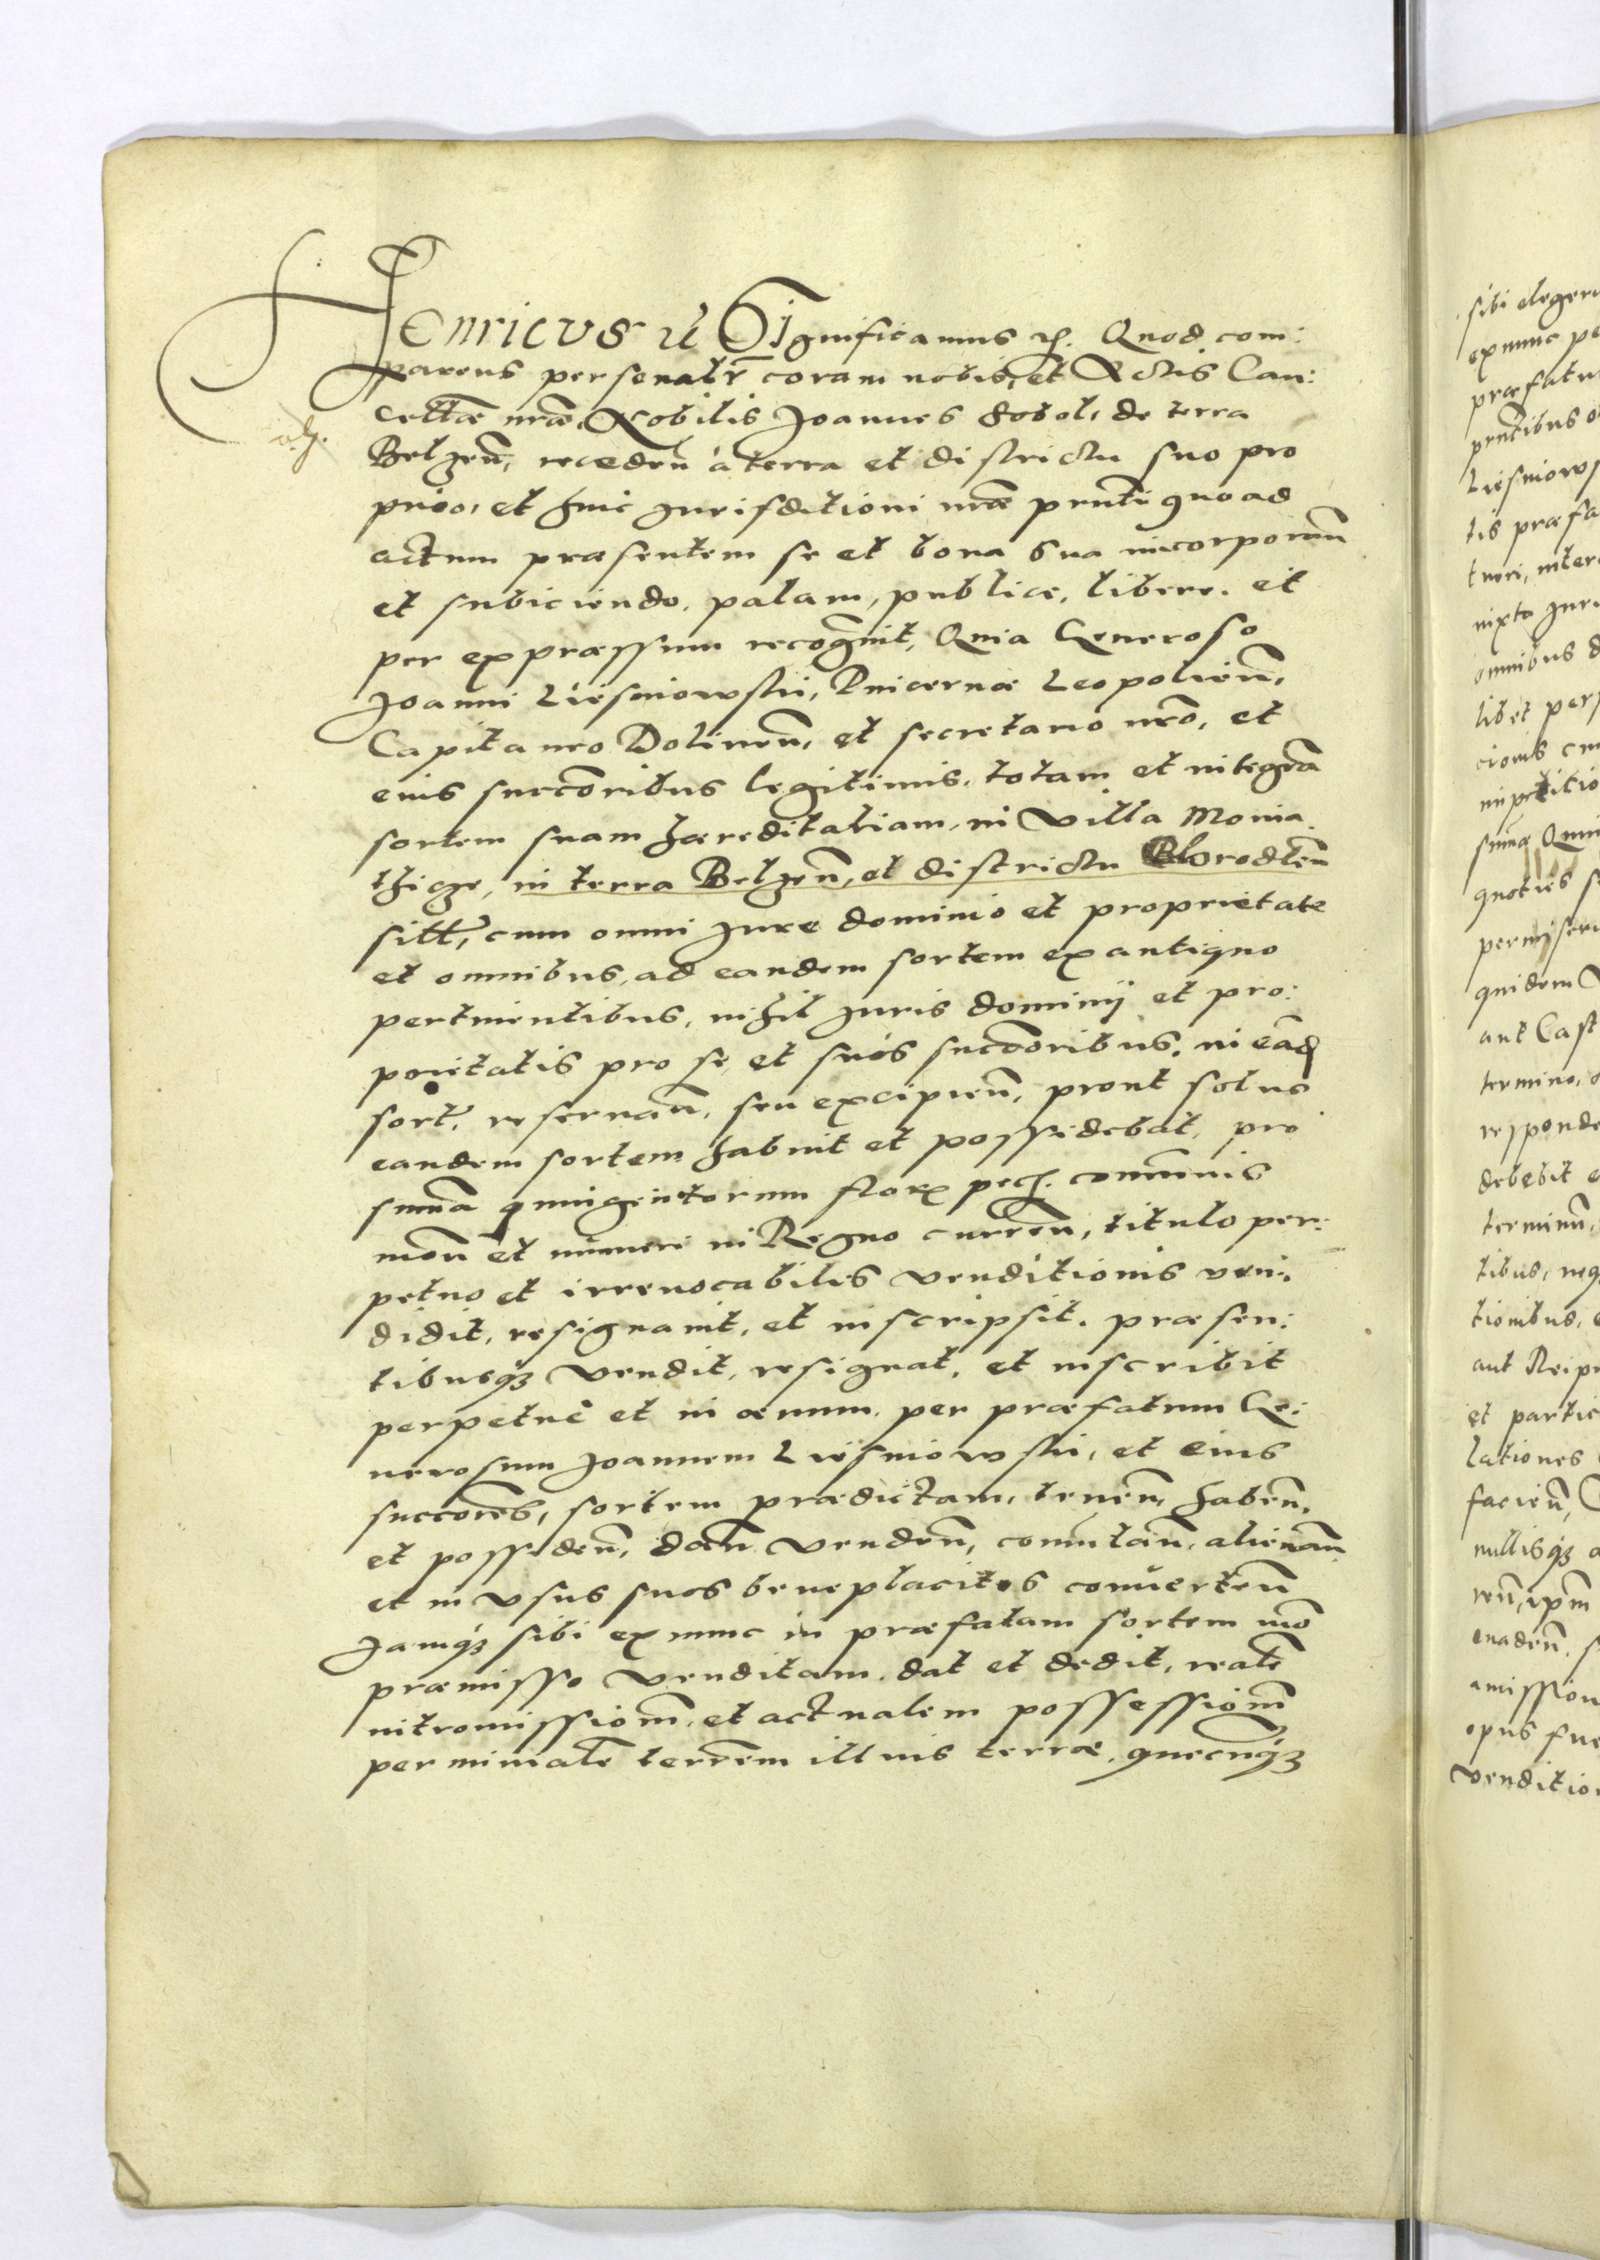 Henricus etc Significamus etc. Quod com:
parens personalr coram nobis, et Actis Can:
cellae nrae, Nobilis Joannes Sobol, de terra
Belzen, receden a terra et districtu suo pro
prio, et huic jurisditioni nrae pnti quo ad
actum praesentem se et bona sua incorporan
et subiciendo, palam, publice, libere, et
per expraessum recognit, Quia Generoso
Joanni Liesniowski, Pincernae Leopolien,
Capitaneo Dolinen, et secretario nro, et
eius succoribus legitimis, totam et integra
sortem suam haereditariam, in villa Monia
thicze, in terra Belzen, et districtu Grodlen
sitt, cum omni jure dominio et proprietate
et omnibus, ad eandem sortem ex antiquo
pertinentibus, nihil juris dominij et pro:
prietatis pro se, et suis succoribus, in ead
sort, reservan, seu excipien, prout solus
eandem sortem habuit et possidebat, pro
summa quingentorum flor pech. communis
mon et numeri in Regno curren, titulo per:
petuo et irrevocabilis venditionis ven:
didit, resignavit, et inscripsit, praesen:
tibusq vendit, resignat, et inscribit
perpetue et in aevum, per praefatum Ge:
nerosum Joannem Liesniowski, et eius
succores, sortem praedictam, tenen, haben,
et possiden, dan, venden, commutan, alienan
et in usus suos beneplacitos converten
Jamq sibi ex nunc in praefatam sortem mo
praemisso venditam, dat et dedit, realem
intromissionem, et actualem possessionem
per minialem terrem illius terrae, quecunq

sibi elegeri
ex nunc pe
praefatu
pntibus
Liesniows
tis praefa
tueri, inter
nixta juri
omnibus d
libet per
cionis cu
impetitio
summa Quin
quoties s
permiseri
quidem
aut Cast
termino,
responde
debebit
terminu,
tibus, neq
tionibus,
aut Reip
et partic
lationes
facien,
nullisq a
ren, ipm
evaden, s
amission
opus fue
venditio